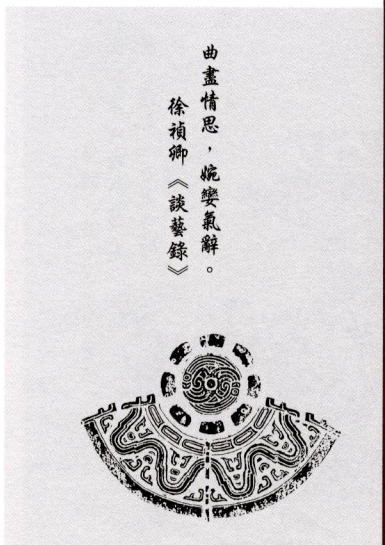 曲盡情思，婉孌氣辭。
徐禎卿《談藝錄》